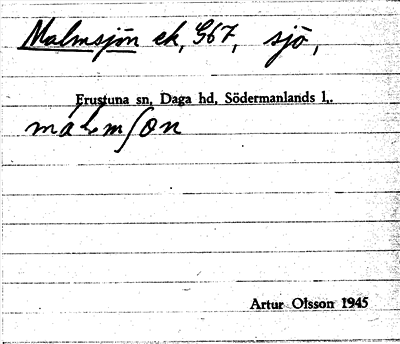 Malmsjön ek, G67, sjö,
Frustuna sn, Daga hd, Södermanlands l..
málmʃön
Artur Olsson 1945